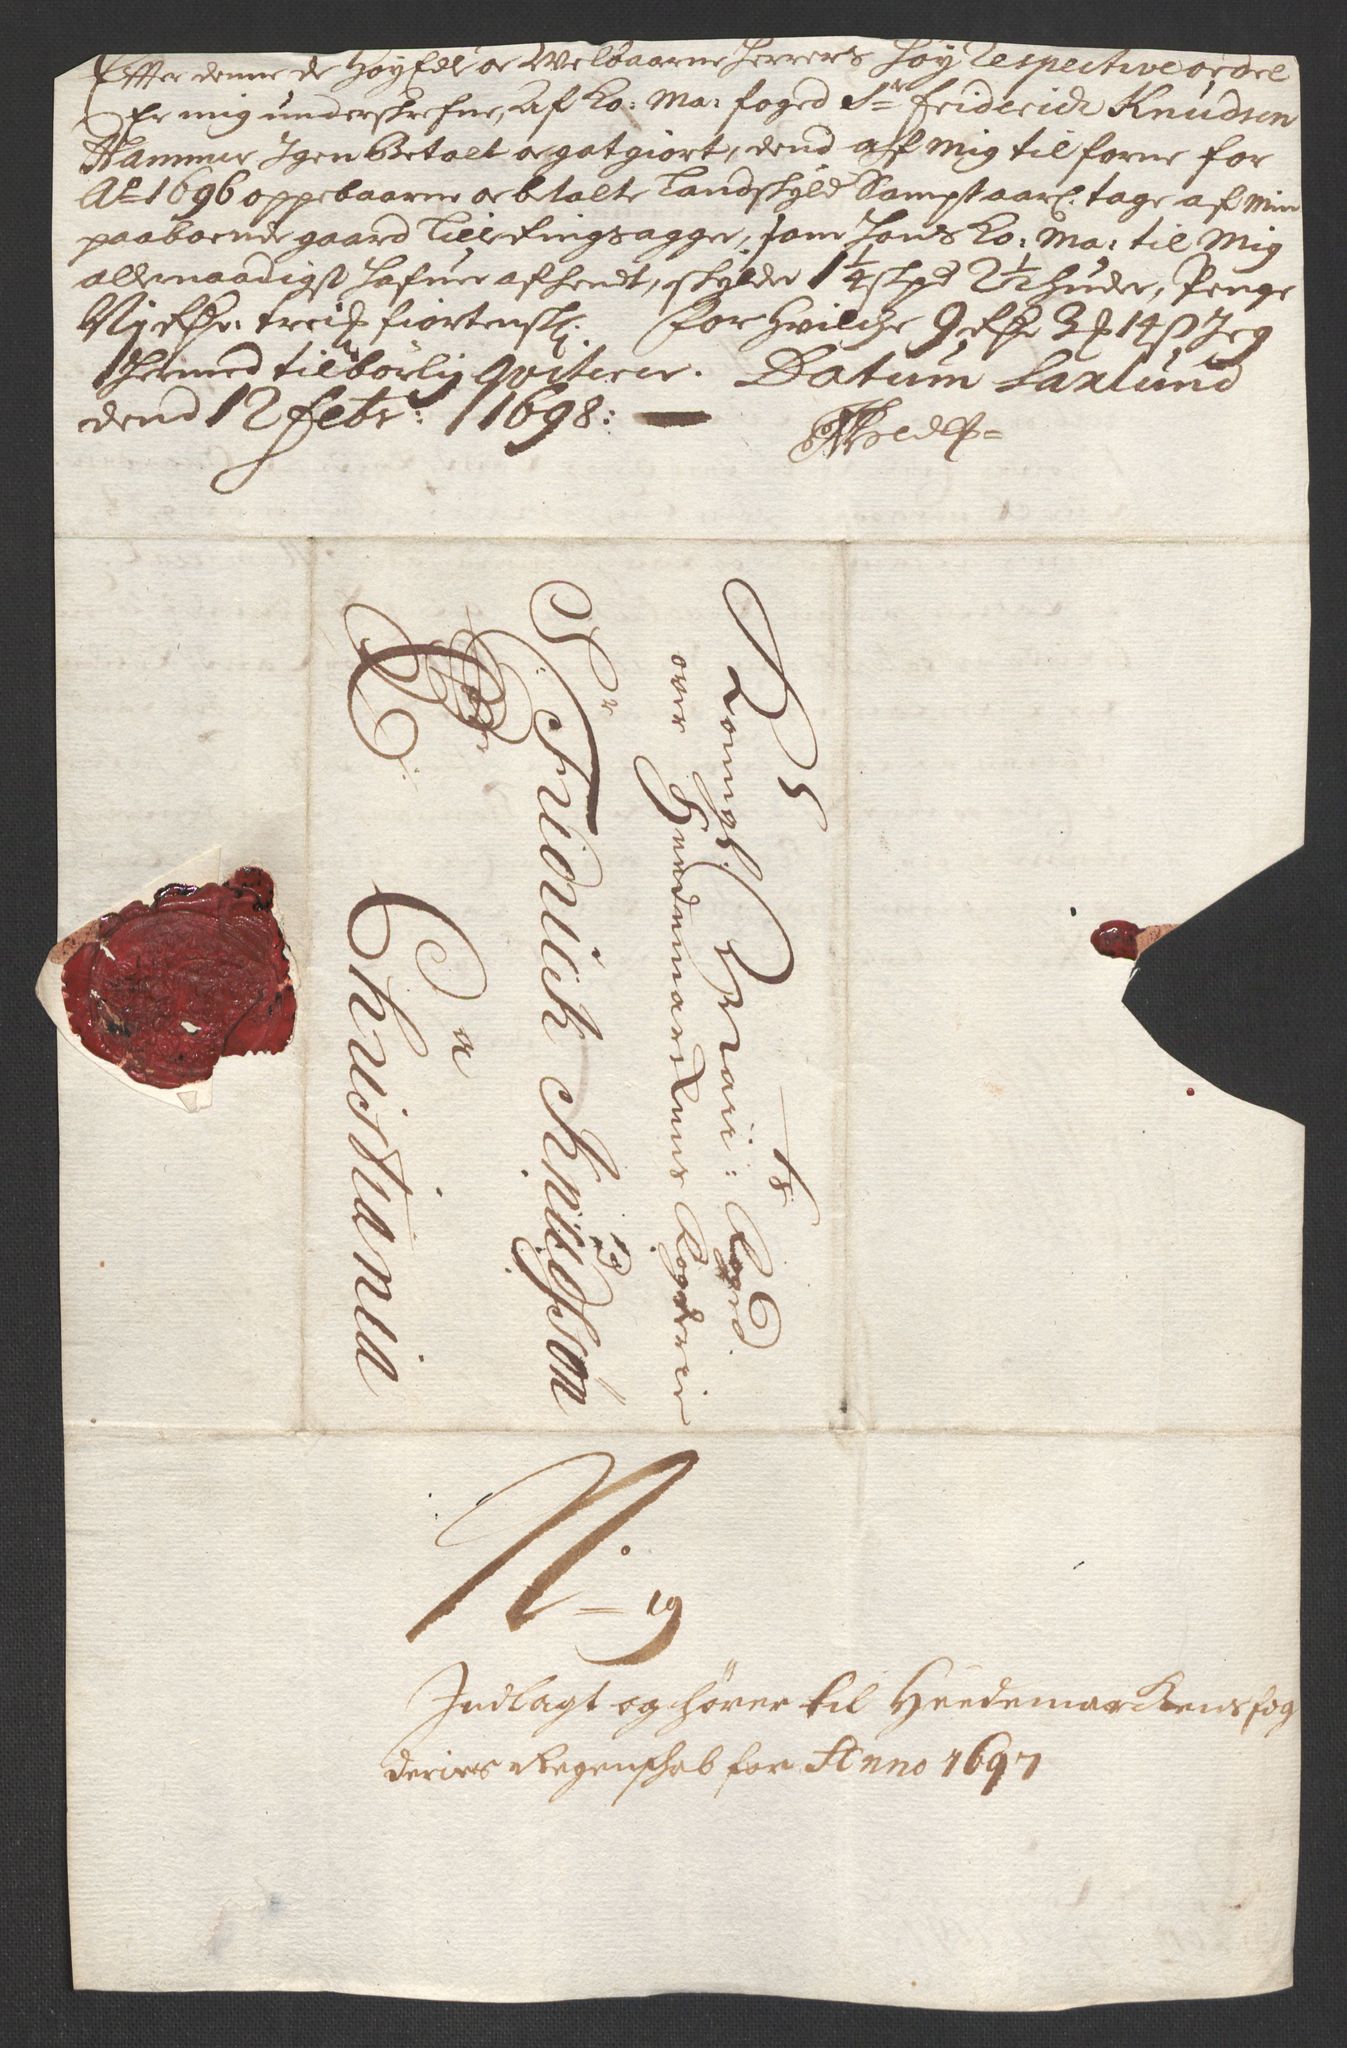 Effter denne de Høyedl. oc Welbaarne Herrers høy Respective ordre
Er mig underskrefne, Af Ko: Ma: foged Sr. friderich Knudsen
Hammer Igen Betalt oc gotgiort, dend aff Mig til forne for
Ao 1696 oppebaarne oc btalte Landskyld Sampt aarl: tage af Min
paaboende gaard, som Hans Ko: Ma: til Mig
allernaadigst hafuer afhendt, skylder 1¼ skpd 2½ huder, Penge
Nj Rdr. trei fiorten sk. for hvilche 9 Rdr 3 14 s Jeg
hermed tilbørlig qviterer. Datum Saxlund
dend 12 febr: 1698:
Kongl: Maii: foged
over Heedemarckens fogderie
Sr Friderich Knudsson
a
Christiania
N: 19
Indlagt og hører til Heedemarckens fog
deries Regenskab for Anno 1697